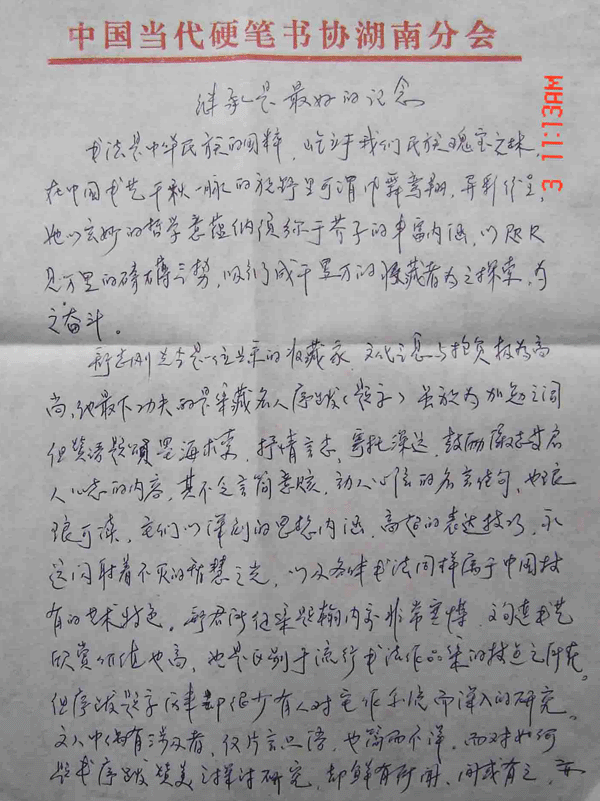 中国当代硬笔书协湖南分会
继承是最好的记念
3 11:13AM
书法是中华民族的国粹，屹立于我们民族瑰宝之林，
在中国书艺千秋一脉的旷野里可谓巾舞鸾翔，异彩纷呈，
她以玄妙的哲学意蕴纳须弥于芥子的丰富内涵，以咫尺
见万里的磅礴之势，吸引成千累万的收藏者为之探索，为
之奋斗。
先生是一位的收藏家，文化之息与抱负极为高
尚，他最下功夫的是采藏名人序跋（题字）虽放为加勉之词
但题颂墨海求索，抒情言志，寄托深远，鼓励
人心志的内容，其不乏言简意赅，动人心弦的名言佳句，也琅
琅可读，它们以深刻的思想内涵，高超的表达技巧，永
远闪射着不灭的智慧之光，以及各体书法同样属于中国特
有的艺术特色。君所征集题翰内容非常，文句连书艺
欣赏价值也高，也是区别于流行书法作品集的特点之所在。
但序跋题字历来却很少有人对它作系统而深入的研究。
文人中偶有涉及者，仅片言只语，也简而不详，而对如何
题书序跋赞美之探讨研究，却鲜有所闻，间或有之，